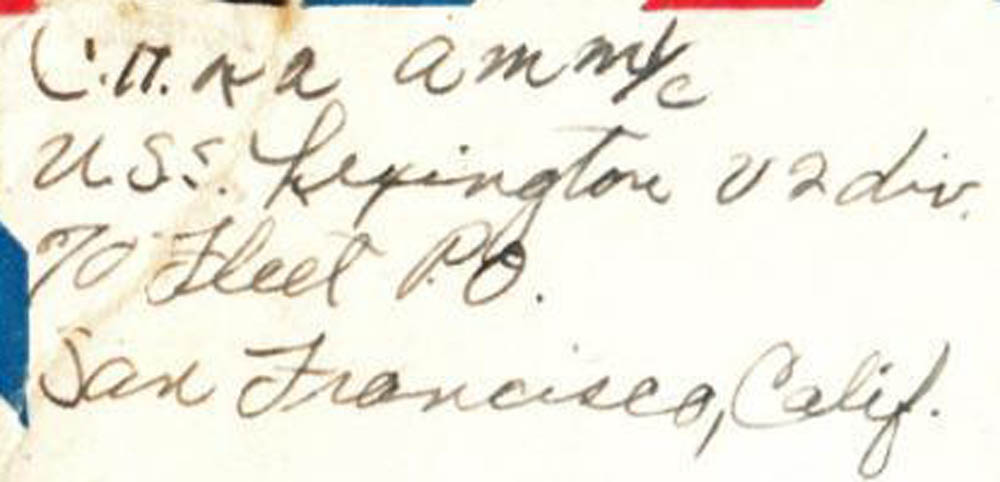 C.H. Ka a m m 1/c
U.S.S. Lexington V2 div.
% Fleet P.O.
San Francisco, Calif.